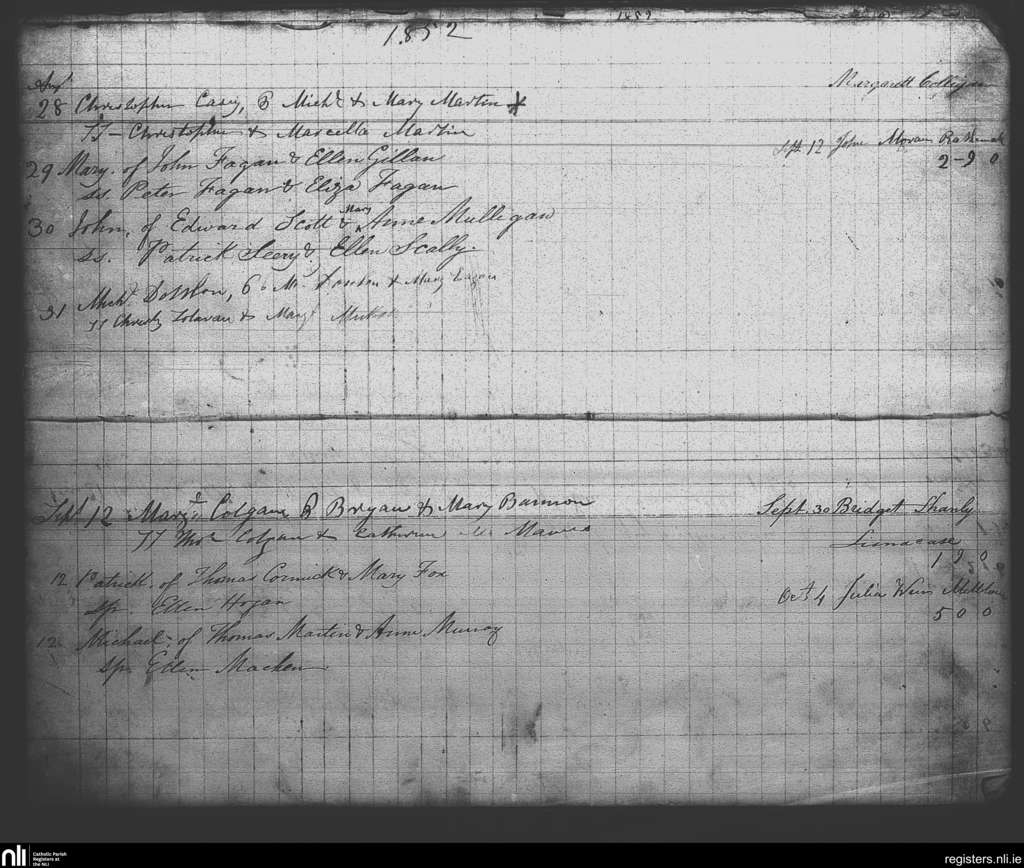 1852
Augt
Margarett Colligan
28 Christopher Casey, B Michl & Mary Martin
SS - Christopher & Marcella Martin
Sept 12 John Moran
2-9 0
29 Mary. of John Fagan & Ellen Gillan
Ss. Peter Fagan & Eliza Fagan
30 John, of Edward Scott & Mary Anne Mulligan
Ss. Patrick Seery & Ellen Scally.
31 Michl
SS Christy & Mary
Sept 12 Mary Colgan B Bryan & Mary Bannon
SS Thos Colgan & Catherine
Sept. 30 Bridget Shanly
1 9 0
12 Patrick. of Thomas Cormick & Mary Fox
sp. Ellen Hogan
Oct 4 Julia Weir
5 0 0
12. Michael. of Thomas Martin & Anne Murray
sp. Ellen Macken
nli
Catholic Parish
Registers at
the NLI
registers.nli.ie